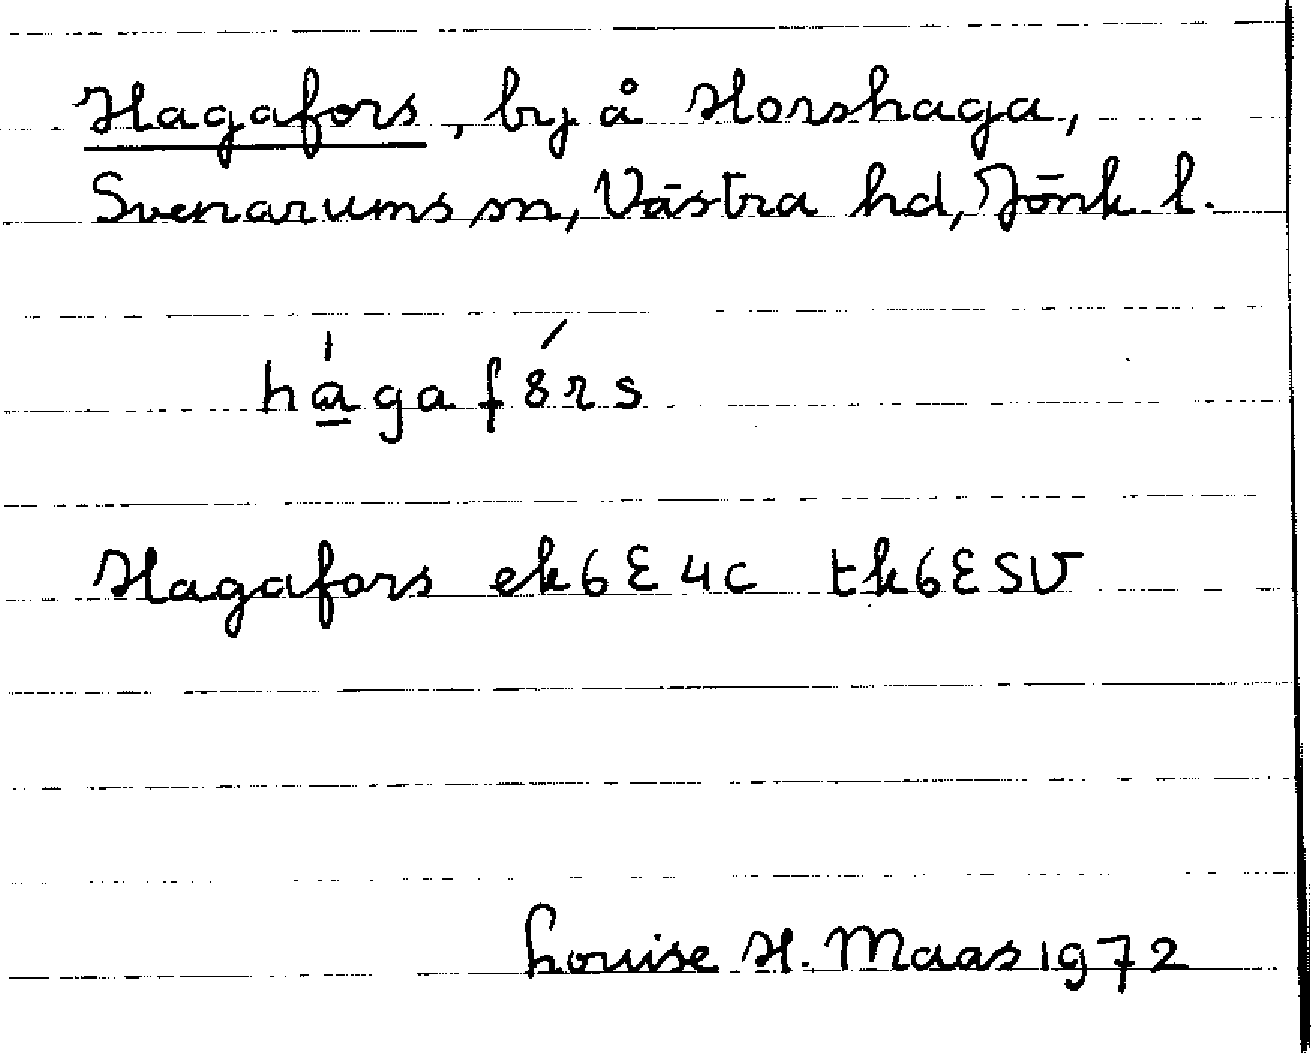 Hagafors, by å Horshaga,
Svenarums sn, Västra hd, Jönk. l.
hágafórs
Hagafors ek 6 E 4c tk 6E SV
Louise H. Maas 1972